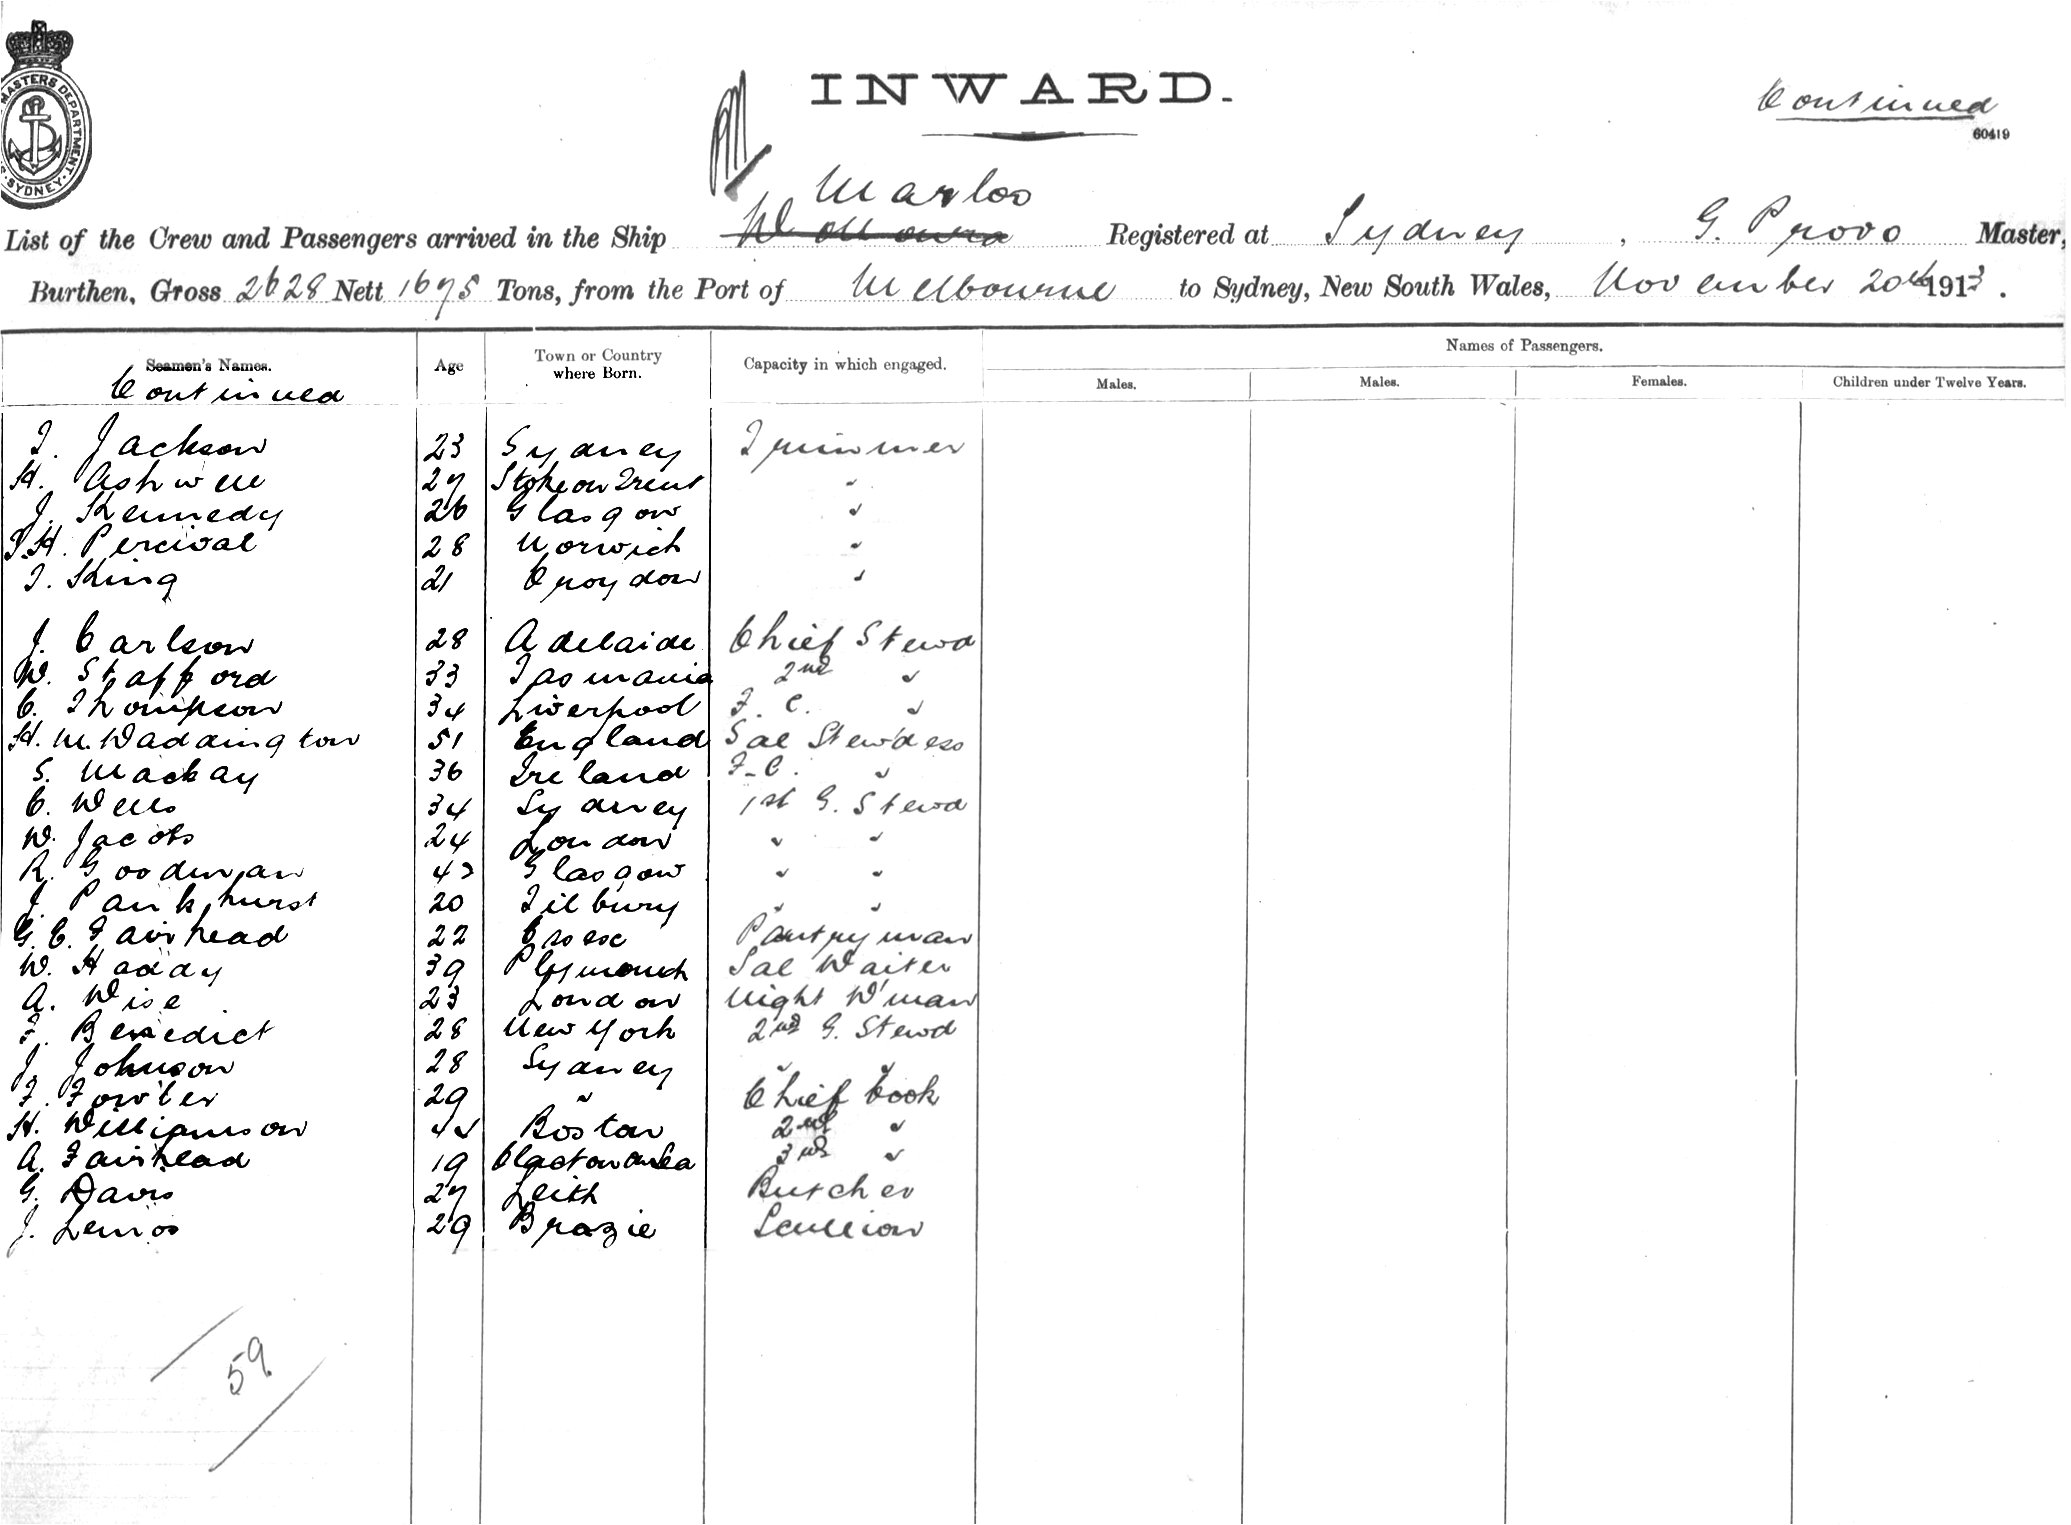 MASTERS DEPARTMENT
SYDNEY
INWARD.
Continued
60419
Marloo
List of the Crew and Passengers arrived in the Ship Wollowra Registered at Sydney, G. Provo Master,
Burthen, Gross 2628 Nett 1675 Tons, from the Port of Melbourne to Sydney, New South Wales, November 20th 1913.
Seamen's Names. Age Town or Country where Born. Capacity in which engaged. Names of Passengers.
Males. Males. Females. Children under Twelve Years.
Continued
T. Jackson 23 Sydney Trimmer
H. Ashwell 27 Stoke on Trent "
J. Kennedy 26 Glasgow "
T.H. Percival 28 Norwich "
T. King 21 Croydon "
J. Carlson 28 Adelaide Chief Stewd
W. Stafford 33 Tasmania 2nd "
C. Thompson 34 Liverpool F. C. "
H. M. Waddington 51 England Sal Stew'dess
S. Mackay 36 Ireland F-C. "
C. Wells 34 Sydney 1st G. Stewd
W. Jacobs 24 London " "
R. Goodman Glasgow " "
J. Pankhurst 20 Tilbury " "
G. C. Fairhead 22 Essex Pantryman
W. Haddy 39 Plymouth Sal Waiter
A. Wise 23 London Night W'man
F. Benedict 28 New York 2nd G. Stewd
J. Johnson 28 Sydney " "
F. Fowler 29 " Chief Cook
H. Williamson Boston 2nd "
A. Fairhead 19 Clacton on Sea 3rd "
G. Davis 27 Leith Butcher
J. Lemos 29 Brazil Scullion
59